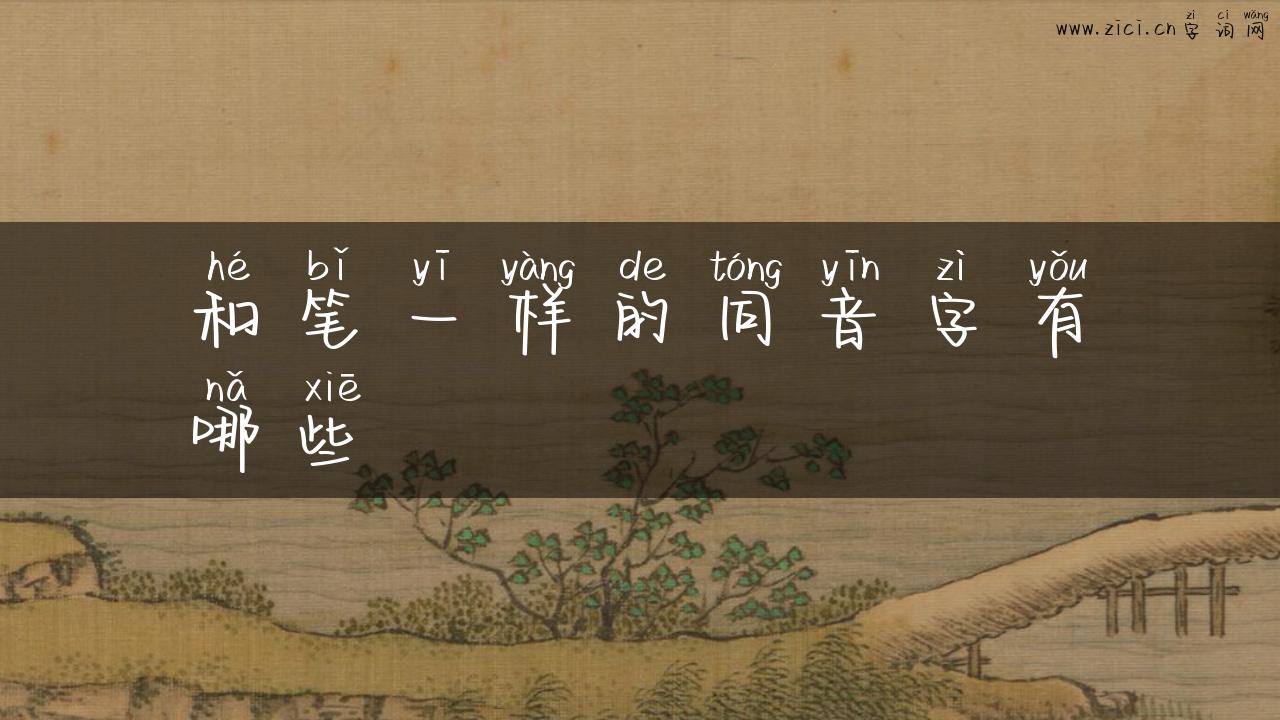 zì cí wǎng
www.zici.cn 字词网
hé bǐ yī yàng de tóng yīn zì yǒu
和笔一样的同音字有
nǎ xiē
哪些